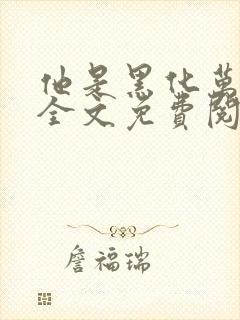 他是黑化萬
全文免費閱
詹福瑞